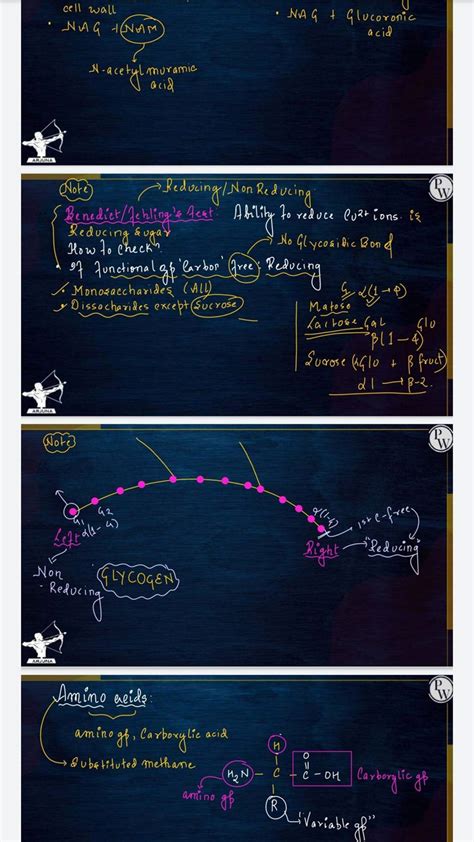 cell wall
• NAG + NAM
N-acetylmuramic
acid
• NAG + Glucoronic
acid
ARJUNA
Note
→ Reducing/Non Reducing
PW
Benedict/Fehling's Test: Ability to reduce Cu2+ ions is
Reducing Sugar
How to check
→ No Glycosidic Bond
• If Functional gp 'Carbon' Free: Reducing
• Monosaccharides (All)
• Dissocharides except Sucrose
G α(1→4)
Matose
Lactose Gal Glu
β(1-4)
Sucrose (α Glu + β fruct)
α1 → β-2
ARJUNA
Note
PW
G1 G2
α(1-4)
α(1-4)
1st c-free
Left
Right → "Reducing"
Non
Reducing
GLYCOGEN
ARJUNA
Amino acids:
PW
amino gp, Carboxylic acid
→ Substituted methane
H
O
H2N - C - C - OH
Carboxylic gp
amino gp
R
"Variable gp"